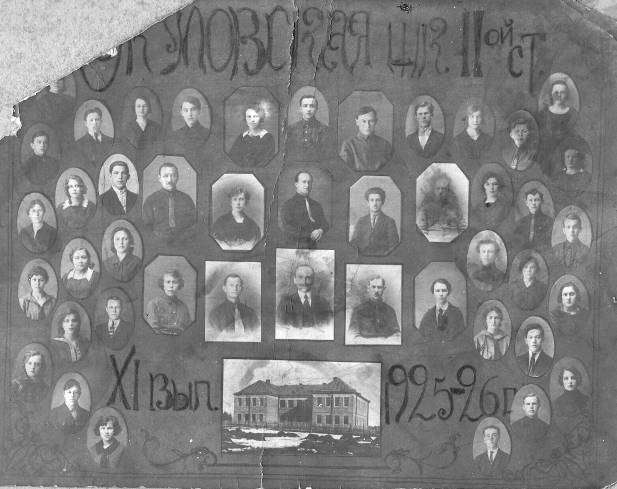 Окуловская шк. II ой ст.
XI вып. 1925-26 г